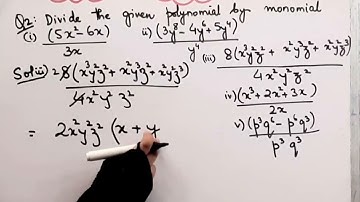 Q2: Divide the given polynomial by monomial
(i) (5x² - 6x) / 3x ii) (3y⁸ - 4y⁶ + 5y⁴) / y⁴
(iii) 8(x³y²z² + x²y³z² + x²y²z³) / 4x²y²z²
Sol: iii) 2 8(x³y²z² + x²y³z² + x²y²z³) / 4x²y²z²
(iv) (x³ + 2x² + 3x) / 2x
= 2x²y²z² (x + y
v) (p³q⁶ - p⁶q³) / p³q³